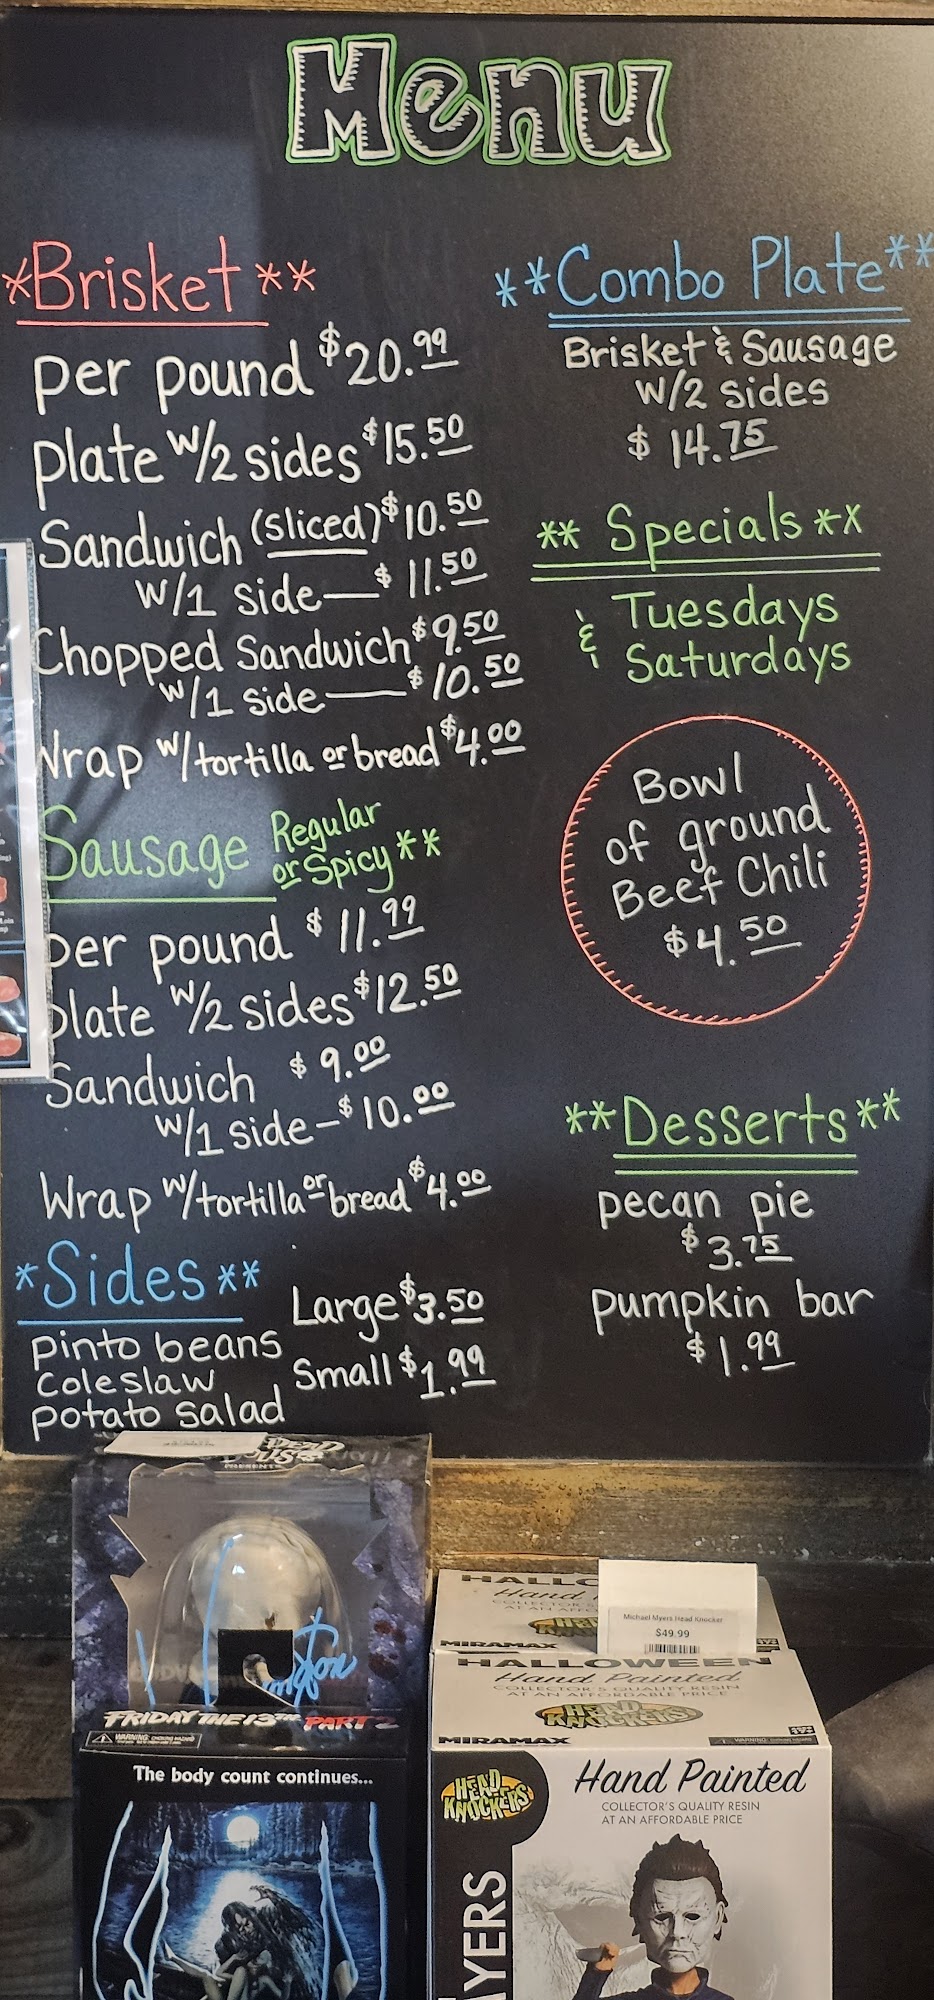 Menu
*Brisket**
per pound $20.99
plate w/2 sides $15.50
Sandwich (sliced) $10.50
w/1 side — $11.50
Chopped Sandwich $9.50
w/1 side — $10.50
Wrap w/tortilla or bread $4.00
Sausage Regular
or Spicy**
per pound $11.99
plate w/2 sides $12.50
Sandwich $9.00
w/1 side – $10.00
Wrap w/tortilla or bread $4.00
*Sides**
pinto beans
coleslaw
potato salad
Large $3.50
Small $1.99
**Combo Plate**
Brisket & Sausage
w/2 sides
$14.75
** Specials **
Tuesdays
& Saturdays
Bowl
of ground
Beef Chili
$4.50
**Desserts**
pecan pie
$3.75
pumpkin bar
$1.99
PRESENTS
FRIDAY THE 13TH PART 2
WARNING:
The body count continues...
HALLO
Hand
MIRAMAX
Michael Myers Head Knocker
$49.99
HALLOWEEN
Hand Painted
COLLECTOR'S QUALITY RESIN
AT AN AFFORDABLE PRICE
HEAD KNOCKERS
MIRAMAX
WARNING:
HEAD
KNOCKERS
Hand Painted
COLLECTOR'S QUALITY RESIN
AT AN AFFORDABLE PRICE
YERS